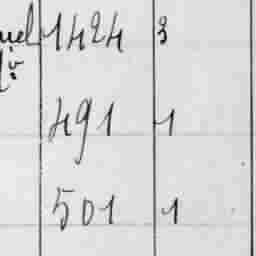 1424 3
491 1
501 1